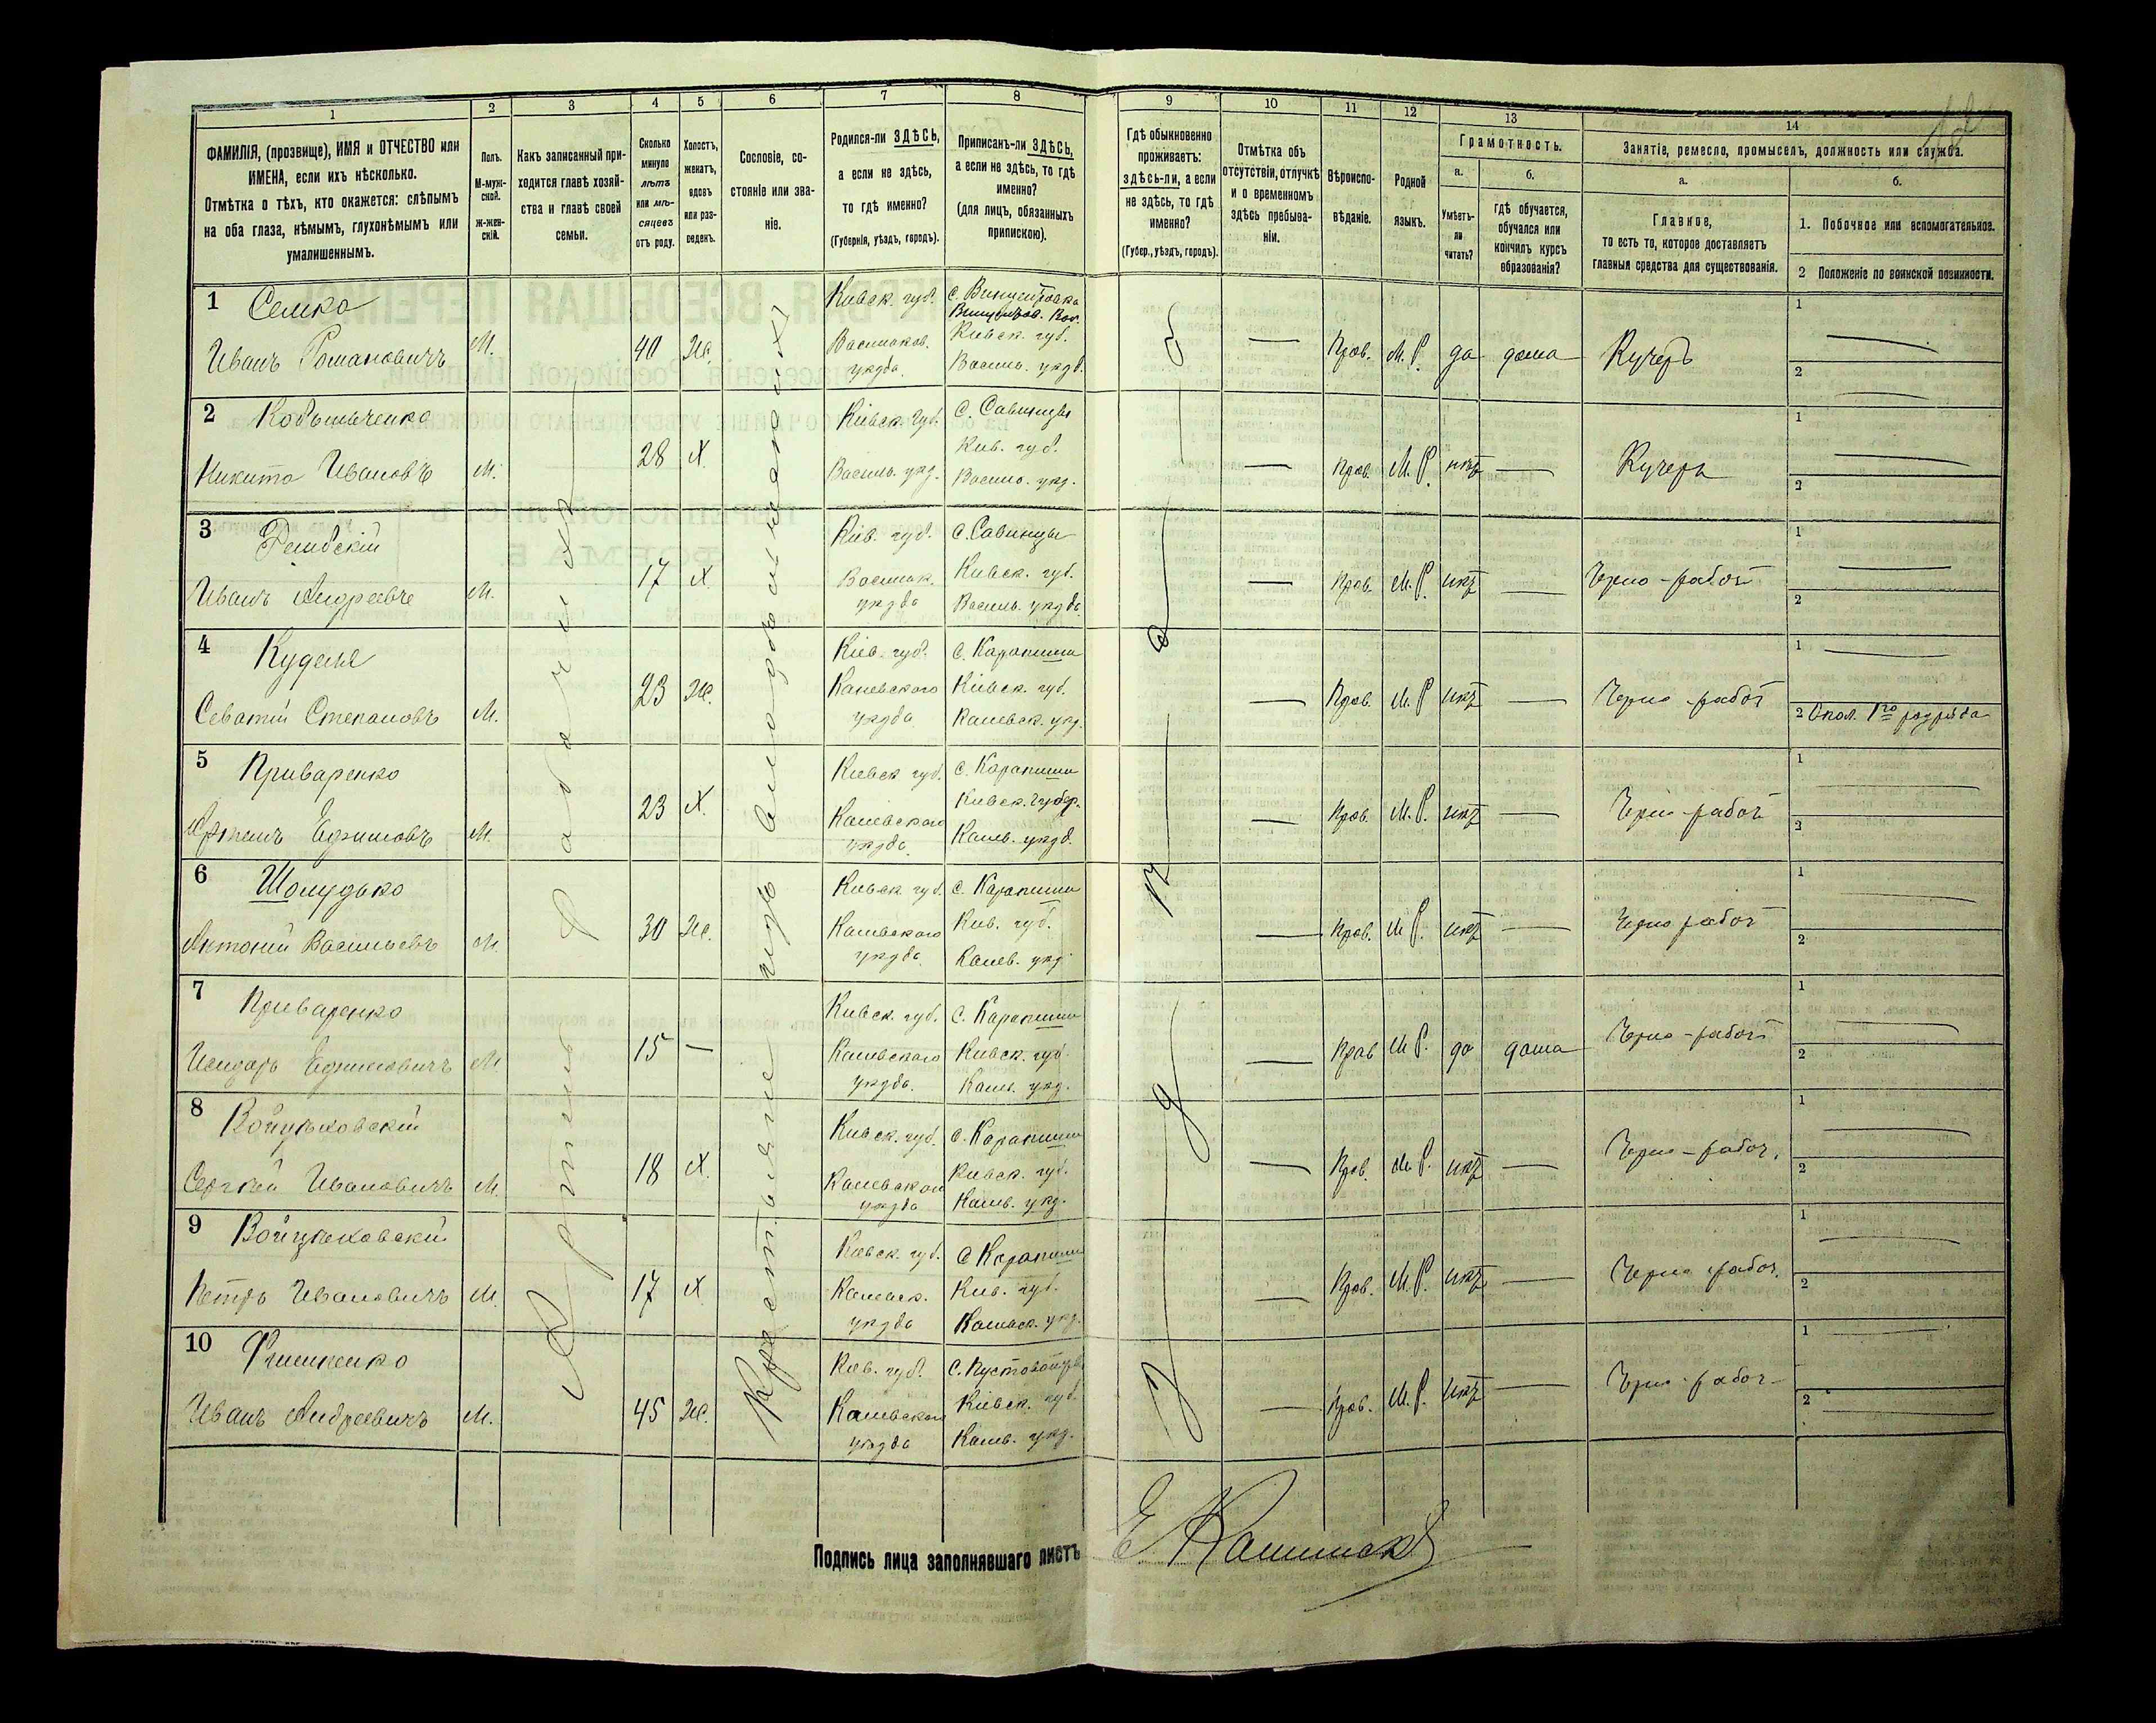 1 2 3 4 5 6 7 8 9 10 11 12 13 14
ФАМИЛІЯ, (прозвище), ИМЯ и ОТЧЕСТВО или
ИМЕНА, если ихъ нѣсколько.
Отмѣтка о тѣхъ, кто окажется: слѣпымъ
на оба глаза, нѣмымъ, глухонѣмымъ или
умалишеннымъ.
Полъ.
М-муж-
ской.
Ж-жен-
скій.
Какъ записанный при-
ходится главѣ хозяй-
ства и главѣ своей
семьи.
Сколько
минуло
лѣтъ
или мѣ-
сяцевъ
отъ роду.
Холостъ,
женатъ,
вдовъ
или раз-
веденъ.
Сословіе, со-
стояніе или зва-
ніе.
Родился-ли ЗДѢСЬ,
а если не здѣсь,
то гдѣ именно?
(Губернія, уѣздъ, городъ).
Приписанъ-ли ЗДѢСЬ,
а если не здѣсь, то гдѣ
именно?
(для лицъ, обязанныхъ
припискою).
Гдѣ обыкновенно
проживаетъ:
здѣсь-ли, а если
не здѣсь, то гдѣ
именно?
(Губер., уѣздъ, городъ).
Отмѣтка объ
отсутствіи, отлучкѣ
и о временномъ
здѣсь пребыва-
ніи.
Вѣроиспо-
вѣданіе.
Родной
языкъ.
Грамотность.
а.
Умѣетъ-
ли
читать?
б.
гдѣ обучается,
обучался или
кончилъ курсъ
образованія?
Занятіе, ремесло, промыселъ, должность или служба.
а.
Главное,
то есть то, которое доставляетъ
главныя средства для существованія.
б.
1. Побочное или вспомогательное.
2 Положеніе по воинской повинности.
Артель рабочихъ
Крестьяне изъ владѣльческихъ
Здѣсь
1 Семко
Иванъ Романовичъ М. 40 Же.
Кіевск. губ.
Васильков.
уѣзда.
Кіевск. губ.
Василь. уѣзд.
— Прав. М. Р. да дома Кучеръ
1
2
2
Никита Ивановъ М. 28 Х.
Кіевск. губ.
Василь. уѣз.
с. Савинцы
Кіев. губ.
Василь. уѣз.
— Прав. М. Р. нѣтъ — Кучеръ
1
2
3
Иванъ Андреевъ М. 17 Х
Кіев. губ.
Васильк.
уѣзда
с. Савинцы
Кіевск. губ.
Василь. уѣзда
— Прав. М. Р. нѣтъ — Черно-рабоч
1
2
4 Куделя
Степановъ М. 23 Же.
Кіев. губ.
Каневского
уѣзда
с. Карапиши
Кіевск. губ.
Каневск. уѣз.
— Прав. М. Р. нѣтъ — Черно рабоч
1
2 Опол. 1го разряда
5 Приваренко
Ефимовъ М. 23 Х.
Кіевск губ.
Каневского
уѣзда.
с. Карапиши
Кіевск. Губер.
Канев. уѣзд.
— Прав. М. Р. нѣтъ — Черно-рабоч
1
2
6 Шолудько
Антоній Васильевъ М. 30 Же.
Кіевск губ.
Каневского
уѣзда.
с. Карапиши
Кіев. губ.
Канев. уѣз.
— Прав. М. Р. нѣтъ — Черно рабоч
1
2
7 Приваренко
Исидоръ Ефимовичъ М. 15 —
Кіевск. губ.
Каневского
уѣзда.
с. Карапиши
Кіевск. губ.
Канев. уѣз.
— Прав М. Р. да дома Черно-рабоч
1
2
8 Войцѣховскій
Сергѣй Ивановичъ М. 18 Х.
Кіевск. губ.
Каневского
уѣзда
с. Карапиши
Кіевск. губ.
Канев. уѣз.
— Прав. М. Р. нѣтъ — Черно-рабоч.
1
2
9 Войцѣховскій
Петръ Ивановичъ М. 17 Х
Кіевск. губ.
Каневск.
уѣзда
с Карапиши
Кіев. губ.
Каневск. уѣз.
— Прав. М. Р. нѣтъ — Черно рабоч.
1
2
10
Иванъ Андреевичъ М. 45 Же.
Кіев. губ.
Каневского
уѣзда
с. Пустовойты
Кіевск. губ.
Канев. уѣз.
— Прав. М. Р. нѣтъ — Черно-рабоч
1
2
Подпись лица заполнявшаго листъ